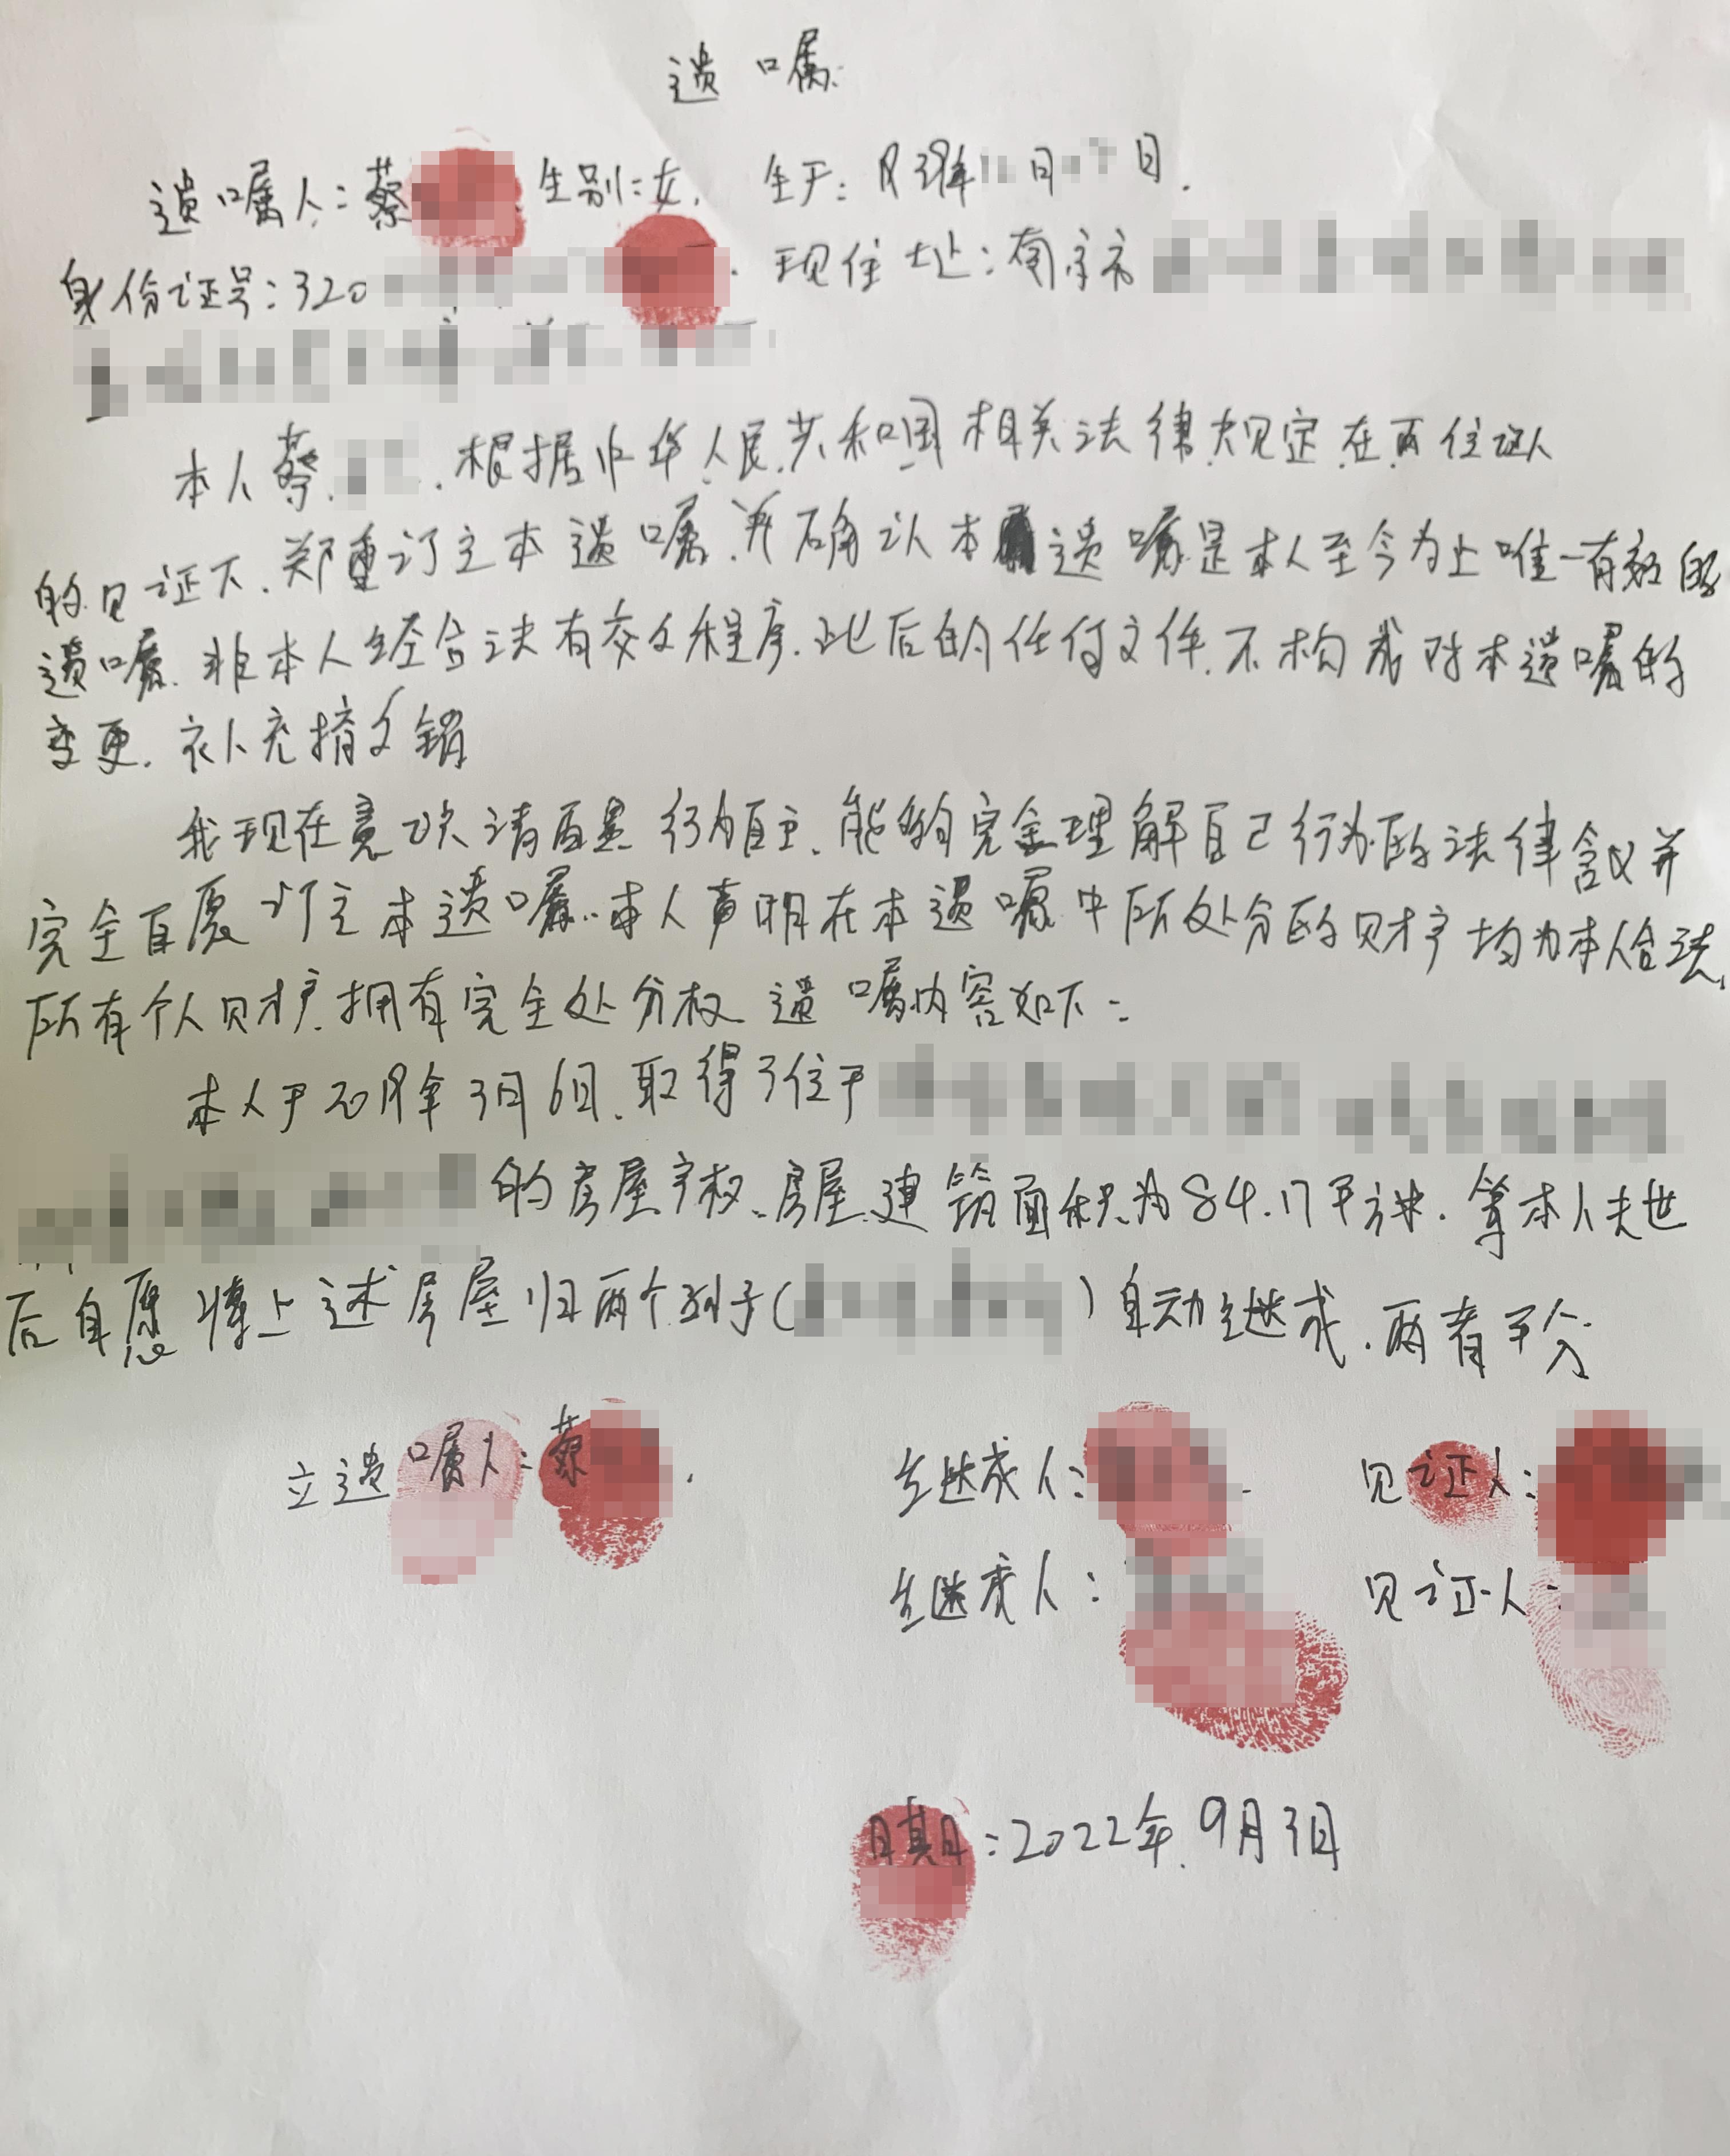 遗嘱
遗嘱人：蔡 生别：女. 生于：1939年 月 日.
身份证号：320 . 现住址：南京市
本人蔡 . 根据中华人民共和国相关法律规定在两位证人
的见证下. 郑重订立本遗嘱. 并确认本遗嘱是本人至今为止唯一有效的
遗嘱. 非本人经合法有交文程序. 此后的任何文件. 不构成对本遗嘱的
变更. 补充 销
我现在意识清 行为自主. 能够完全理解自己行为的法律含义并
完全自愿订立本遗嘱. 本人声明在本遗嘱中所处分的财产均为本人合法
所有个人财产. 拥有完全处分权 遗嘱内容如下：
本人于2018年3月6日. 取得了位于
的房屋产权. 房屋建筑面积为84.17平方米. 等本人去世
后自愿将上述房屋归两个 子（ ）自动继承. 两者平分
立遗嘱人：蔡 . 继承人： 见证人：
继承人： 见证人：
日期：2022年.9月3日